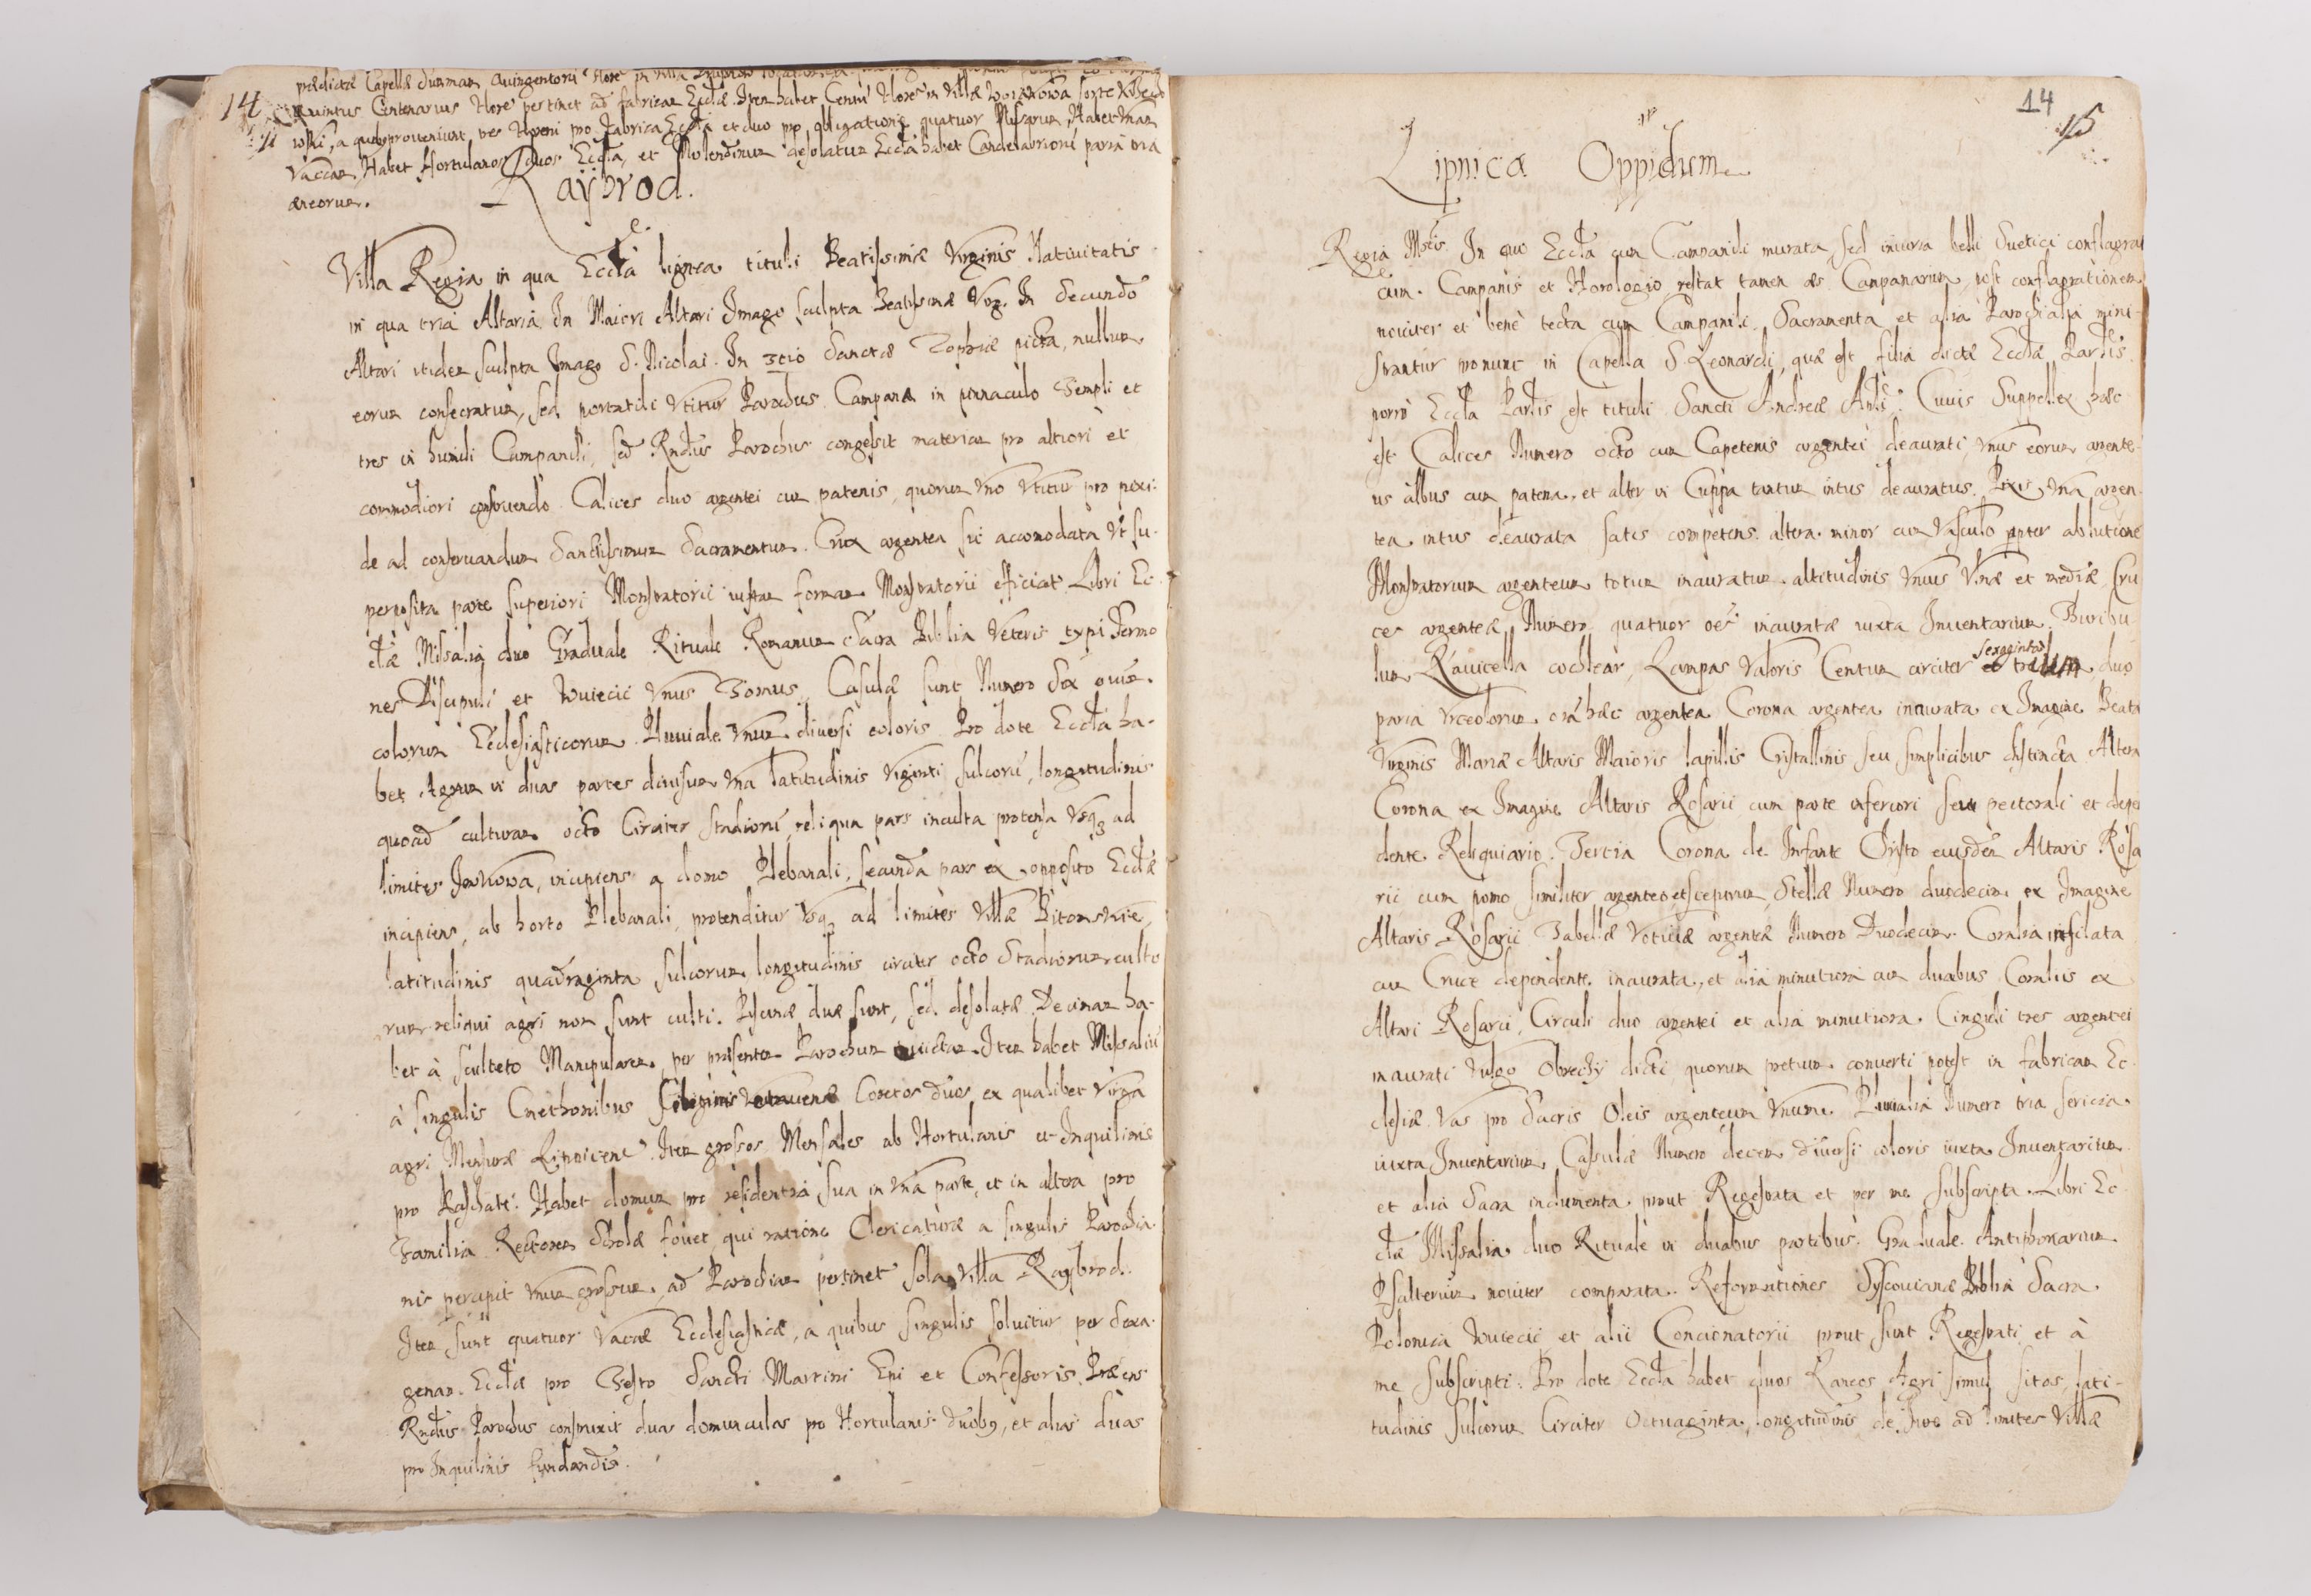 14
prædictæ Capellæ summam Quingentorũ
Quintus Centenarius flore pertinet ad fabricam Ecclæ. Item habet Centũ flores in Villa
a quibus proveniunt, tres floreni pro fabrica Ecclæ et duo pro obligatione quatuor Missarum, Habet unam
Vaccam, Habet Hortulanos duos Eccla, et Molendinum desolatum Eccla habet Candelabriorũ paria tria
æreorum.
Raÿbrod.
Villa Regia in qua Eccla lignea tituli Beatissimæ Virginis Nativitatis
in qua tria Altaria, In Maiori Altari Imago sculpta Beatissimæ Virg. In Secundo
Altari itidem sculpta Imago S. Nicolai. In 3tio Sanctæ Zophiæ picta, nullum
eorum consecratum, sed portatili Utitur Parochus. Campanæ in pinnaculo Templi et
tres in humili Campanili, sed Rndus Parochus congessit materiam pro altiori et
commodiori construendo. Calices duo argentei cum patenis, quorum uno Utitur pro pixi-
de ad conservandum Sanctissimum Sacramentum. Crux argentea sic accomodata Ut su-
perposita parte superiori Monstratorii instar formam Monstratorii efficiat. Libri Ec-
clæ Missalia duo Graduale Rituale Romanum Sacra Biblia Veteris typi Sermo
nes Discipuli et Wuiecic Unus Tomus, Casulæ sunt Numero Sex
colorum Ecclesiasticorum. Pluviale Unum diversi coloris. Pro dote Eccla ha-
bet Agrum in duas partes divisum Una latitudinis Viginti sulcorũ, longitudinis
quoad culturam octo Circiter stadiorũ, reliqua pars inculta protensa Usq3 ad
limites incipiens a domo Plebanali, secunda pars ex opposito Ecclæ
incipiens, ab horto Plebanali, protenditur Usq3 ad limites Villæ
latitudinis quadraginta sulcorum longitudinis circiter octo Stadiorum culto
rum reliqui agri non sunt culti. Piscinæ duæ sunt, sed desolatæ. Decimam ha-
bet à sculteto Manipularem, per præsentem Parochum evictam. Item habet Missaliũ
à singulis Cmethonibus avenæ Coretos duos ex qualibet Virga
agri Mensuræ Item grossos Mensales ab Hortulanis et Inquilinis
pro Paschate. Habet domum pro residentia sua in Una parte, et in altera pro
Familia. Rectorem Scholæ fovet, qui ratione Clericaturæ a singulis Parochia-
nis percipit Unum grossum, ad Parochiam pertinet sola Villa Raÿbrod.
Item sunt quatuor Vaccæ Ecclesiasticæ, a quibus singulis solvitur per Sexa-
genam. Ecclæ pro Festo Sancti Martini Epi et Confessoris. Præens
Rndus Parochus construxit duas domunculas pro Hortulanis duobq, et alias duas
pro Inquilinis fundandis.
14
15
Lipnica Oppidum
Regia Mstis. In quo Eccla cum Campanili murata, sed iniuria belli Suetici conflagrat
cum. Campanis et Horologio, restat tamen æs Campanarum, post conflagrationem
noviter et bene tecta cum Campanili. Sacramenta et alia Parochialia mini-
strantur pronunc in Capella S. Leonardi, quæ est filia dictæ Ecclæ Parlis.
porrò Eccla Parlis est tituli Sancti Andreæ Apli. Cuius Suppellex hæc
est. Calices Numero octo cum Capetenis argentei deaurati, Unus eorum argente-
us albus cum patena, et alter in Cuppa tantum intus deauratus. Pixis una argen-
tea intus deaurata satis competens altera minor cum Vasculo propter ablutione
Monstratorium argenteum totum inauratum altitudinis Unius Ulnæ et mediæ. Cru
ces argenteæ Numero quatuor oes inauratæ iuxta Inventarium. Turibu-
lum Navicella cochlear, Lampas Valoris Centum circiter et sexaginta duo
paria Urceolorum oia hæc argentea. Corona argentea inaurata ex Imagine Beata
Virginis Mariæ Altaris Maioris lapillis Cristallinis seu simplicibus distincta. Altera
Corona ex Imagine Altaris Rosarii cum parte inferiori seu pectorali et depen
dente Reliquiario. Tertia Corona de Infante Christo eiusdem Altaris Rosa
rii cum pomo similiter argenteo et sceptrum, Stellæ Numero duodecim ex Imagine
Altaris Rosarii. Tabellæ Votivæ argenteæ Numero Duodecim. Coralia infilata
cum Cruce dependente inaurata, et alia minutiora cum duabus Coralus ex
Altari Rosarii, Circuli duo argentei et alia minutiora. Cinguli tres argentei
inaurati Vulgo dicti quorum pretium converti potest in fabricam Ec-
clesiæ. Vas pro Sacris Oleis argenteum Unum. Pluvialia Numero tria sericea
iuxta Inventarium, Casulæ Numero decem diversi coloris iuxta Inventarium
et alia Sacra indumenta prout Regestrata et per me subscripta. Libri Ec-
clæ Missalia duo Rituale in duabus partibus. Graduale Antiphonarium
Psalterium noviter comparata. Reformationes Biblia Sacra
Polonica Wuiecic et alii Concionatorii prout sunt Regestrati et à
me subscripti. Pro dote Eccla habet duos Laneos Agri simul sitos, lati-
tudinis sulcorum Circiter Octuaginta, longitudinis de ad limites Villæ